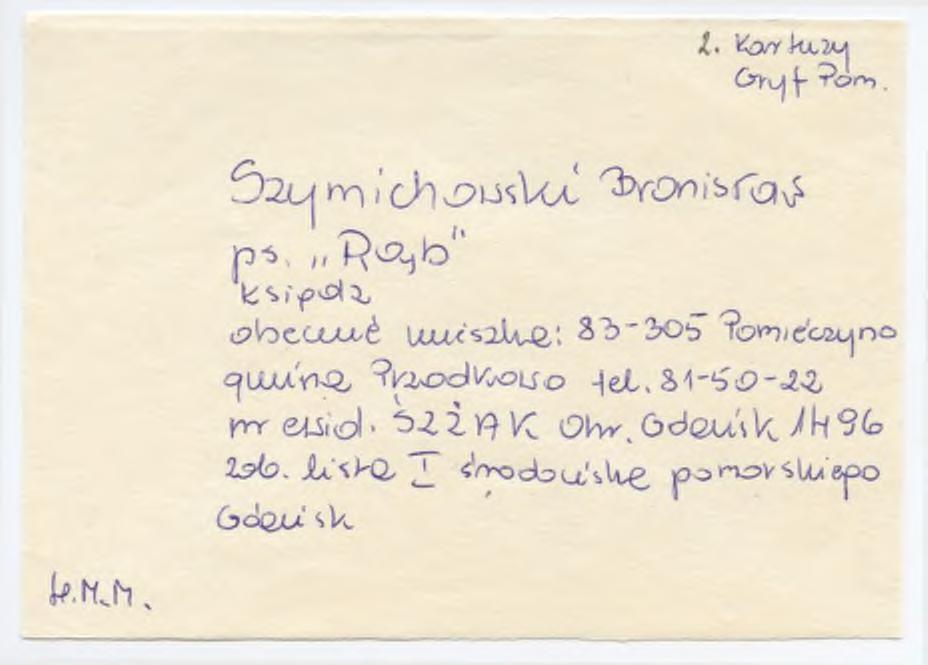 2. Kartuzy
Gryf Pom.
Szymichowski Bronisław
ps. „Rąb"
ksiądz
obecnie mieszka: 83-305 Pomieczyno
gmina Przodkowo tel. 81-50-22
nr ewid. ŚZŻAK Okr. Gdańsk 1496
zob. lista I środowiska pomorskiego
Gdańsk
H.M.M.